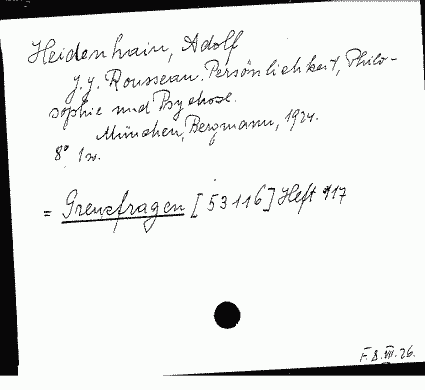 Heidenhain, Adolf
J. J. Rousseau. Persönlichkeit, Philo-
sophie und Psychose.
München, Bergmann, 1924.
8° 1 w.
= Grenzfragen [53116] Heft 117
F. 8. VII. 26.